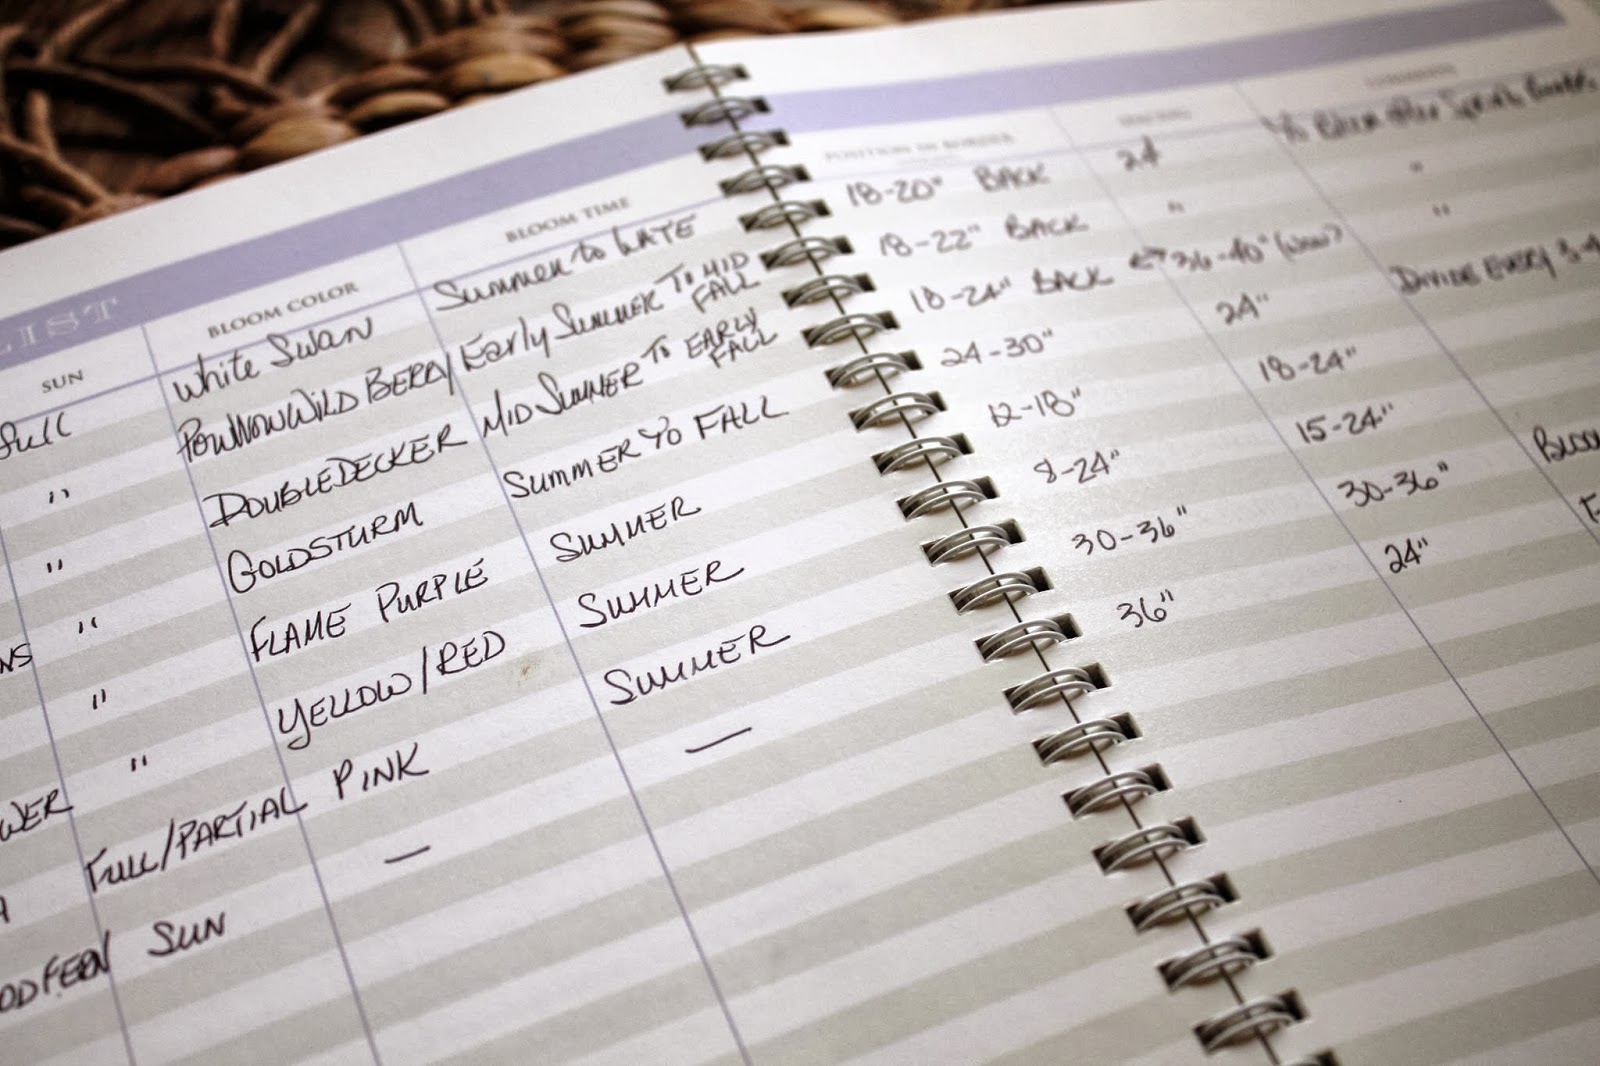 LIST
SUN BLOOM COLOR BLOOM TIME
full White Swan Summer to Late
" PowWow Wild Berry Early Summer To Mid Fall
" DoubleDecker Mid Summer To Early Fall
" Goldsturm Summer To Fall
" Flame Purple Summer
" Yellow/Red Summer
Full/Partial Pink Summer
Sun — —
POSITION IN BORDER SPACING COMMENTS
18-20" Back 24
18-22" Back " "
18-24" Back 36-40" "
24-30" 24" Divide Every 3-4
12-18" 18-24"
8-24" 15-24"
30-36" 30-36"
36" 24"